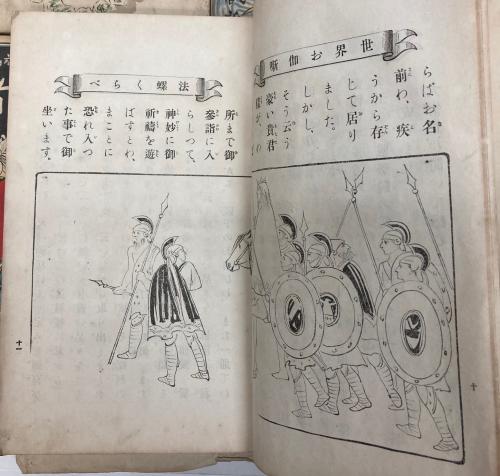 世界お伽噺
らばお名
前わ、疾
うから存
じて居り
ました。
しかし、
そう云う
豪い貴君
樣が、わ
十
法螺くらべ
所まで御
參詣に入
らしつて、
神妙に御
祈禱を遊
ばすとわ、
まことに
恐れ入つ
た事で御
坐います。
十一